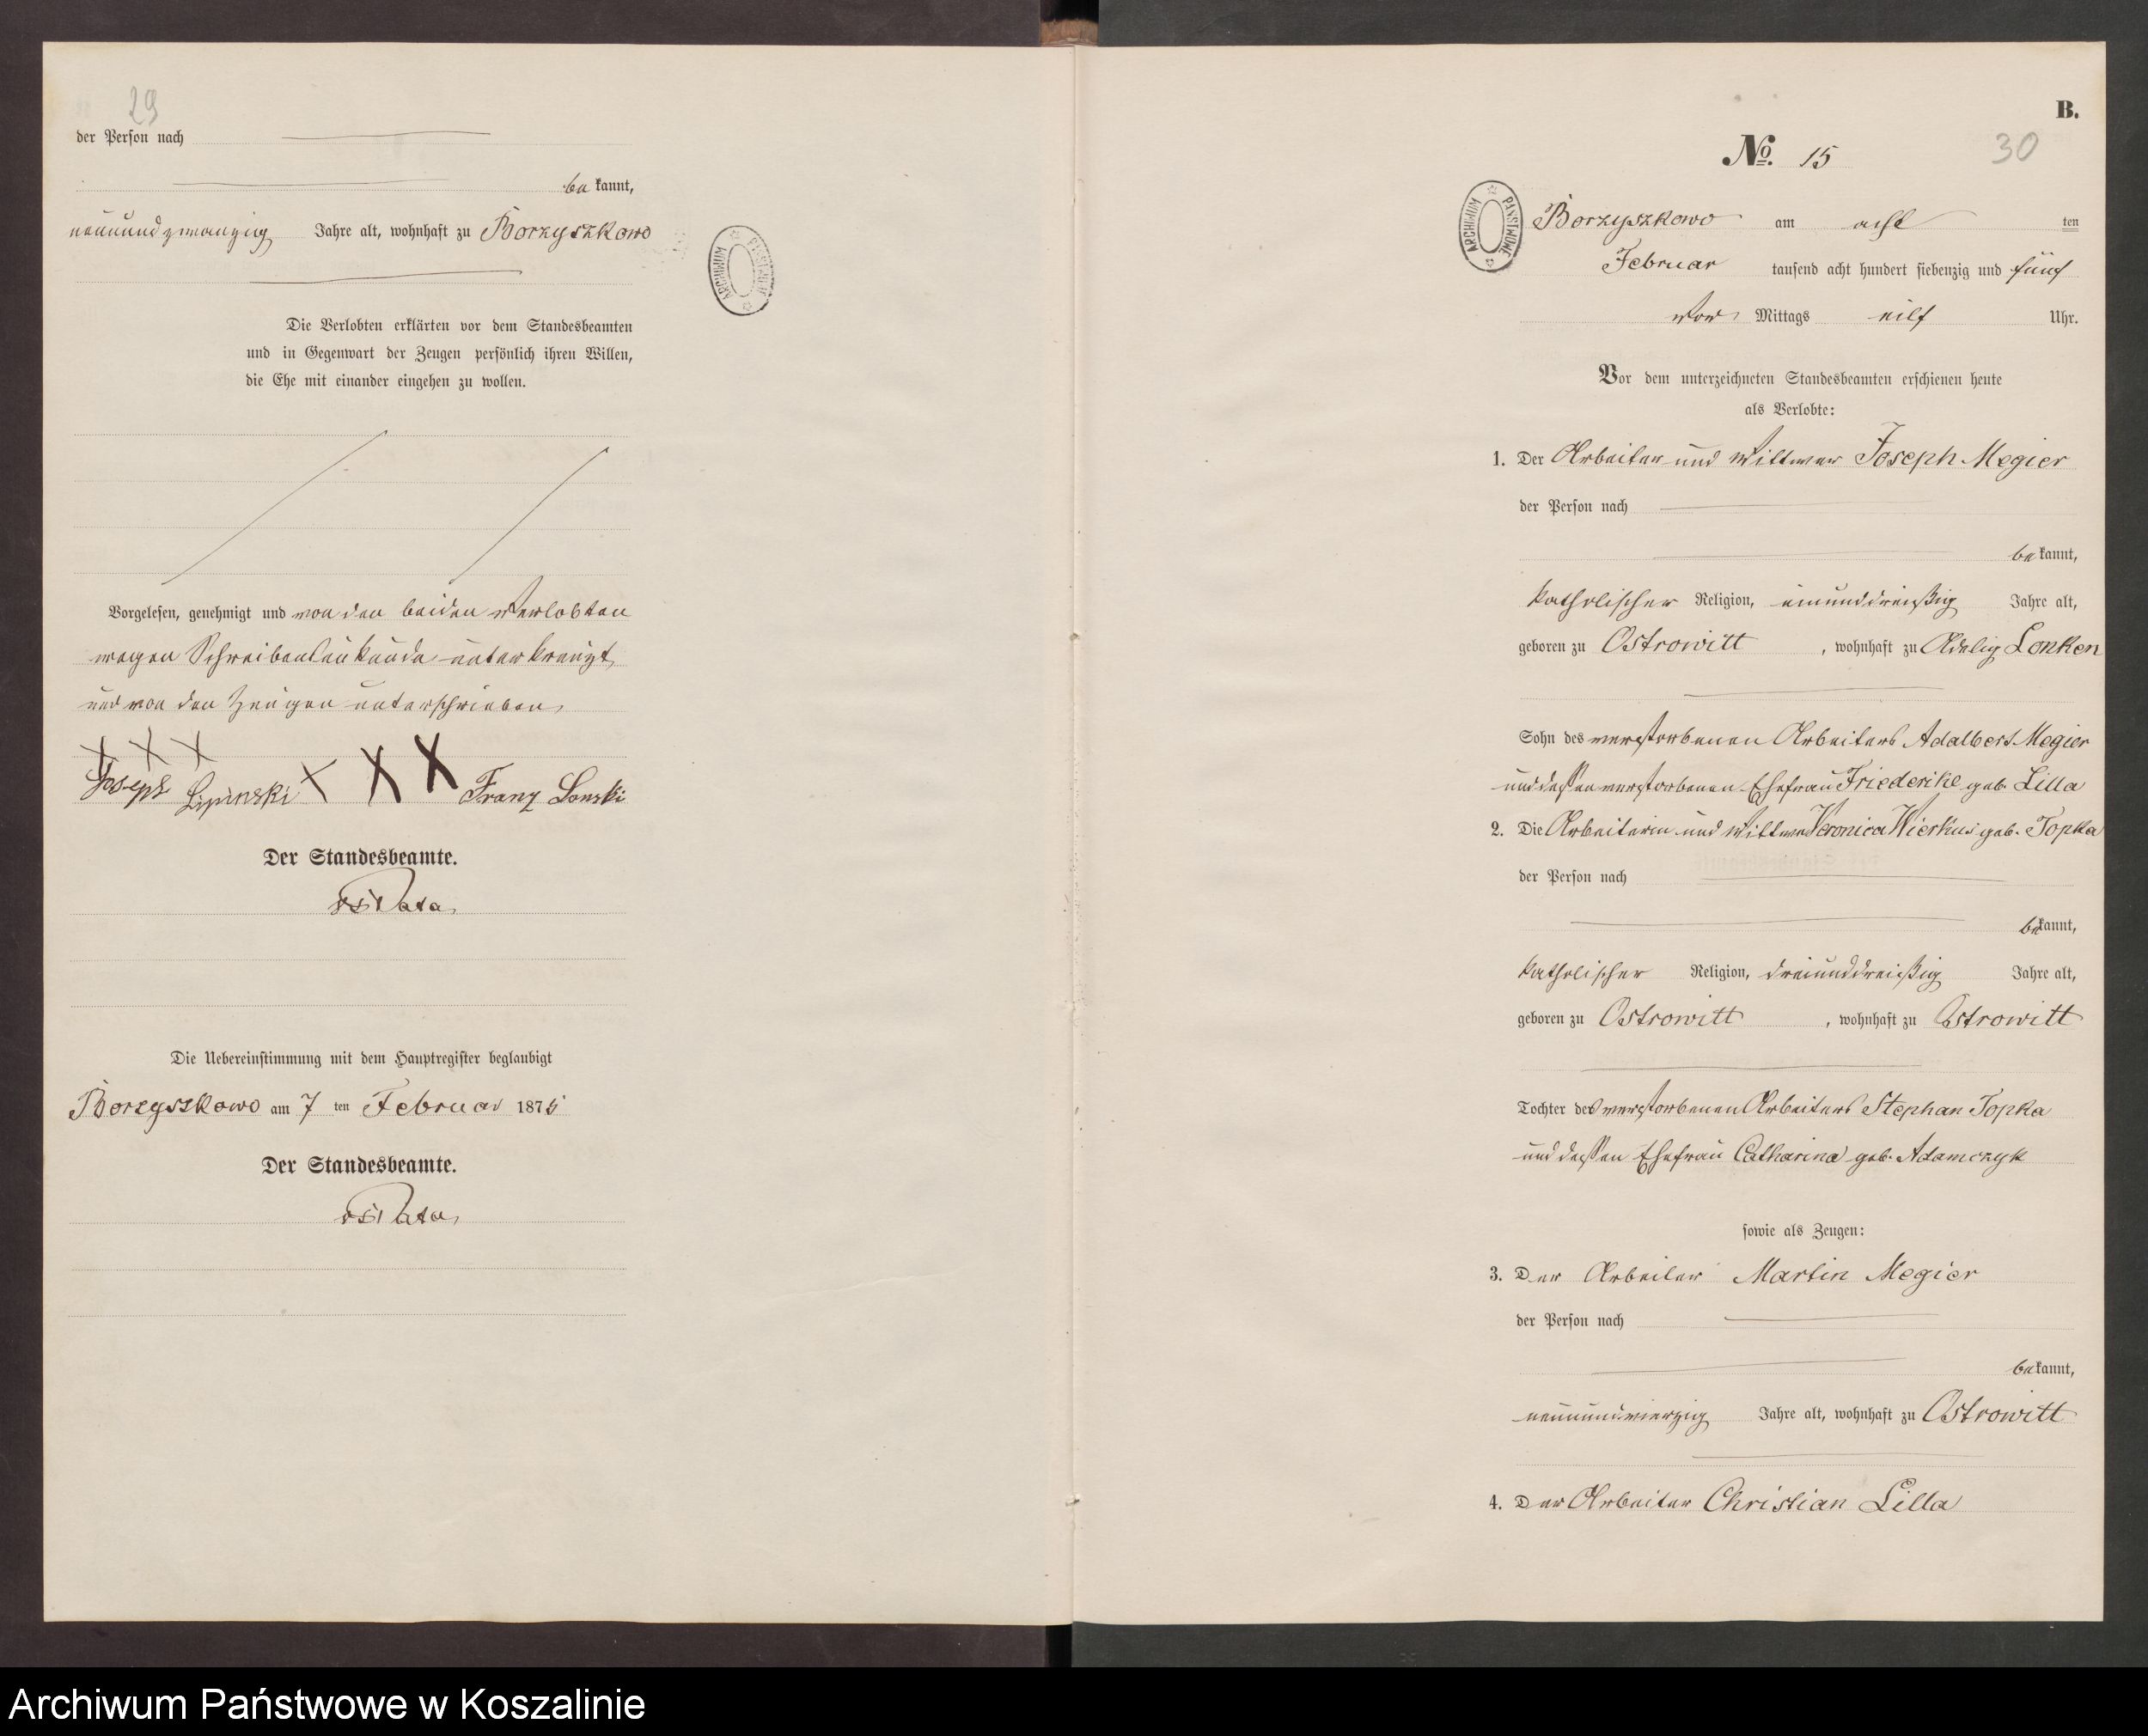 29
der Person nach
be kannt,
neunundzwanzig Jahre alt, wohnhaft zu Borzyszkowo
ARCHIWUM PAŃSTWOWE
Die Verlobten erklärten vor dem Standesbeamten
und in Gegenwart der Zeugen persönlich ihren Willen,
die Ehe mit einander eingehen zu wollen.
Vorgelesen, genehmigt und von den beiden Verlobten
wegen Schreibensunkunde unterkreuzt
und von den Zeugen unterschrieben,
X X X
Joseph Lipinski X X X Franz Lonski
Der Standesbeamte.
Die Uebereinstimmung mit dem Hauptregister beglaubigt
Borzyszkowo am 7 ten Februar 1875
Der Standesbeamte.
B.
No. 15
30
ARCHIWUM PAŃSTWOWE
Borzyszkowo am acht ten
Februar tausend acht hundert siebenzig und fünf
vor Mittags eilf Uhr.
Vor dem unterzeichneten Standesbeamten erschienen heute
als Verlobte:
1. Der Arbeiter und Wittwer Joseph Megier
der Person nach
be kannt,
katholischer Religion, einunddreißig Jahre alt,
geboren zu Ostrowitt, wohnhaft zu Adelig Lonken
Sohn des verstorbenen Arbeiters Adalbert Megier
und dessen verstorbenen Ehefrau Friederike geb. Lilla
2. Die Arbeiterin und Wittwe Veronica Wierkus geb. Topka
der Person nach
bekannt,
katholischer Religion, dreiunddreißig Jahre alt,
geboren zu Ostrowitt, wohnhaft zu Ostrowitt
Tochter des verstorbenen Arbeiters Stephan Topka
und dessen Ehefrau Catharina geb. Adamczyk
sowie als Zeugen:
3. Der Arbeiter Martin Megier
der Person nach
bekannt,
neunundvierzig Jahre alt, wohnhaft zu Ostrowitt
4. Der Arbeiter Christian Lilla
Archiwum Państwowe w Koszalinie